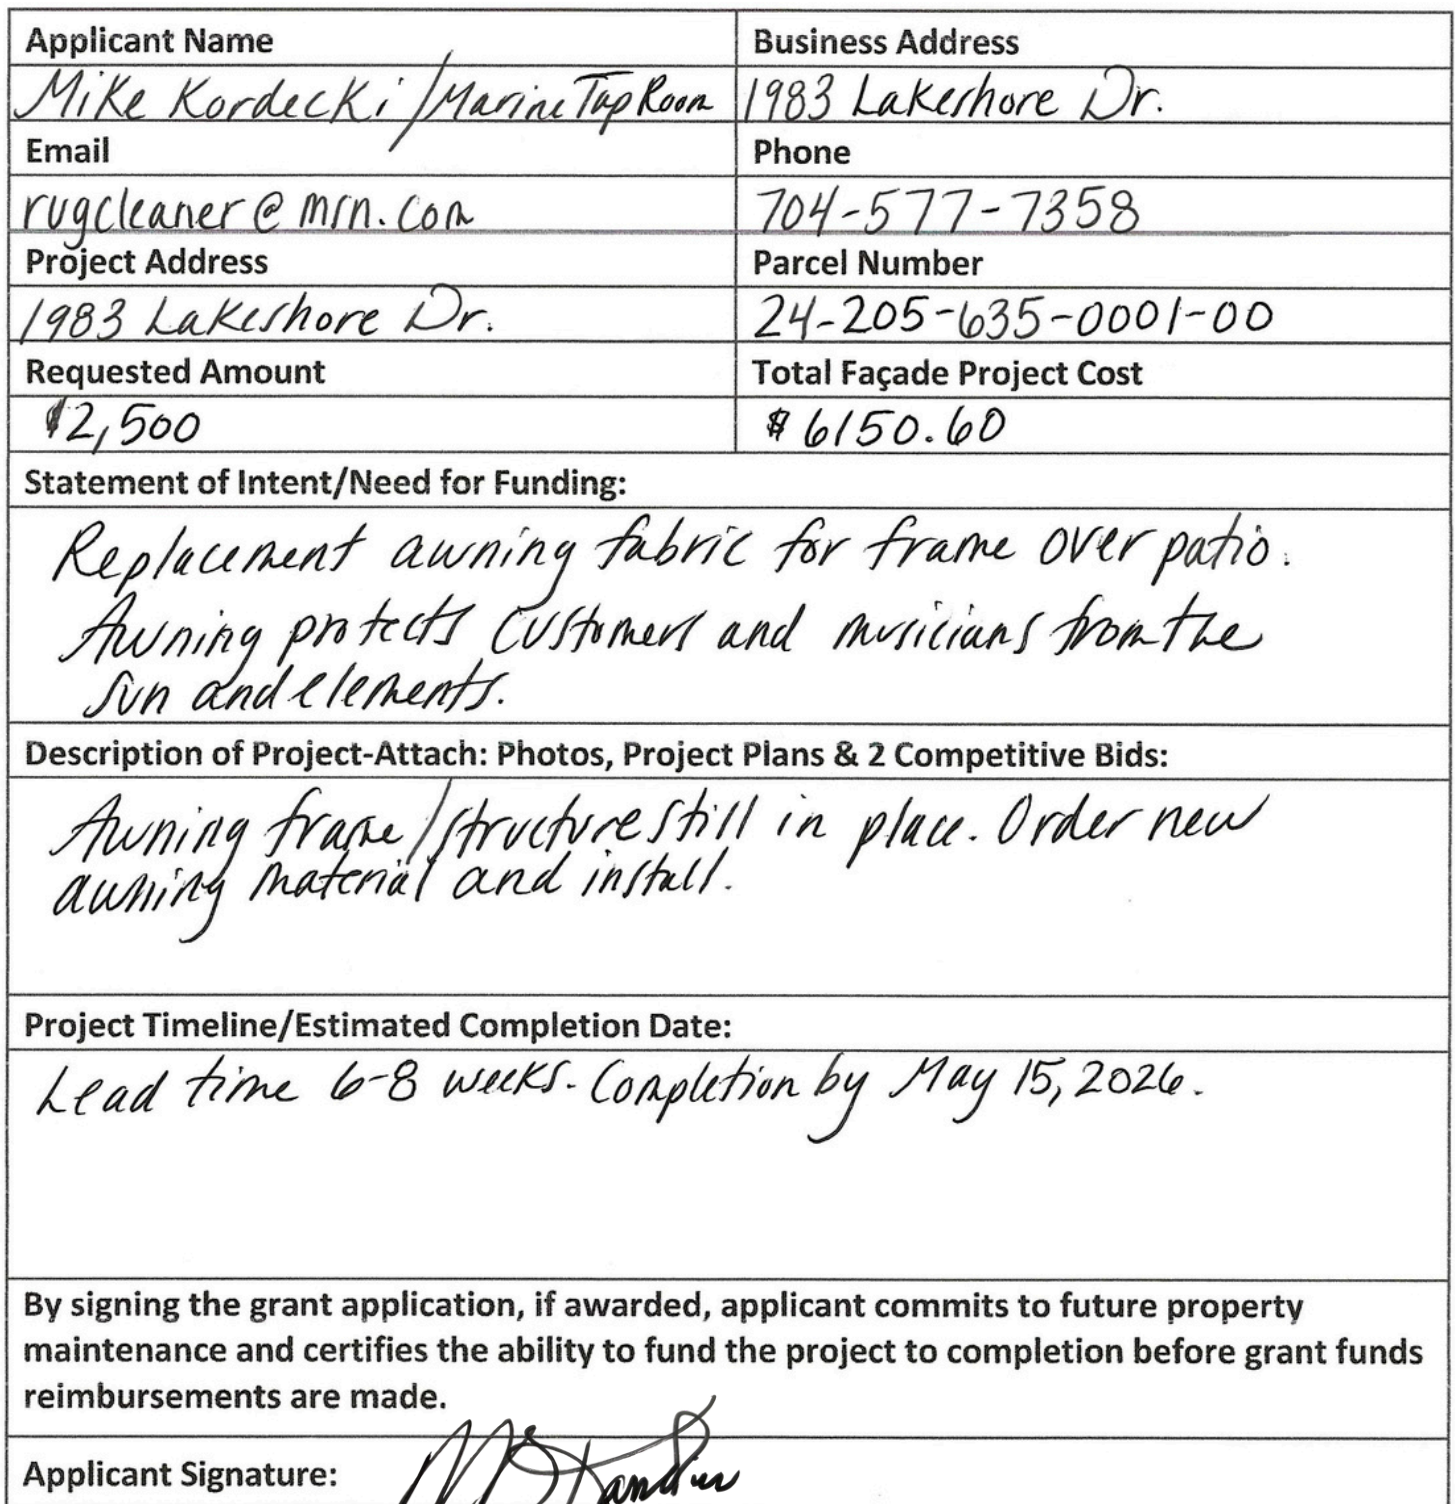 Applicant Name
Business Address
Mike Kordecki / Marine Tap Room
1983 Lakeshore Dr.
Email
Phone
rugcleaner@msn.com
704-577-7358
Project Address
Parcel Number
1983 Lakeshore Dr.
24-205-635-0001-00
Requested Amount
Total Façade Project Cost
$2,500
$6150.60
Statement of Intent/Need for Funding:
Replacement awning fabric for frame over patio.
Awning protects customers and musicians from the
sun and elements.
Description of Project-Attach: Photos, Project Plans & 2 Competitive Bids:
Awning frame/structure still in place. Order new
awning material and install.
Project Timeline/Estimated Completion Date:
Lead time 6-8 weeks. Completion by May 15, 2026.
By signing the grant application, if awarded, applicant commits to future property
maintenance and certifies the ability to fund the project to completion before grant funds
reimbursements are made.
Applicant Signature: